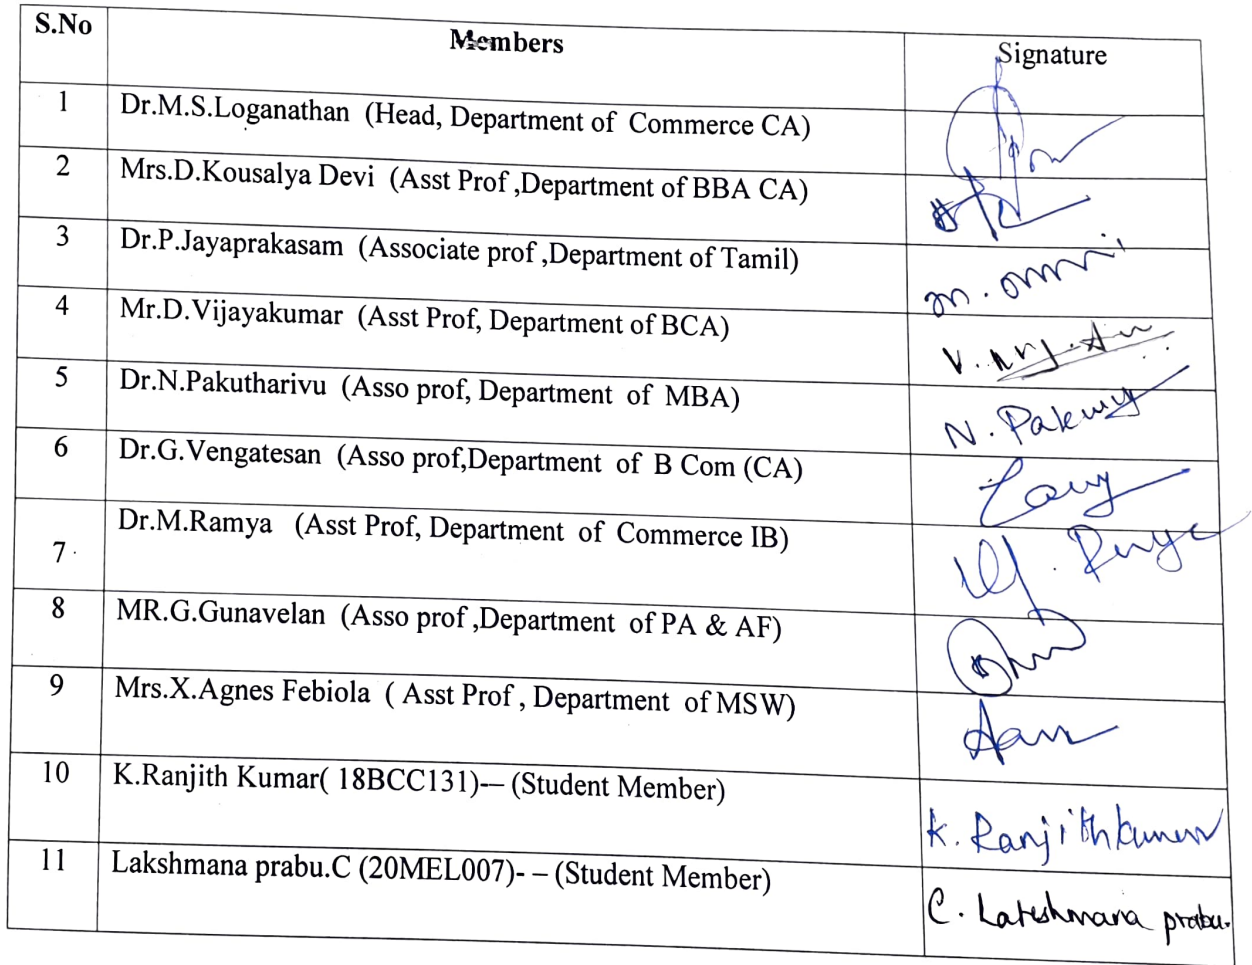 S.No Members Signature
1 Dr.M.S.Loganathan (Head, Department of Commerce CA)
2 Mrs.D.Kousalya Devi (Asst Prof ,Department of BBA CA)
3 Dr.P.Jayaprakasam (Associate prof ,Department of Tamil)
4 Mr.D.Vijayakumar (Asst Prof, Department of BCA)
5 Dr.N.Pakutharivu (Asso prof, Department of MBA) N.
6 Dr.G.Vengatesan (Asso prof,Department of B Com (CA)
7 Dr.M.Ramya (Asst Prof, Department of Commerce IB)
8 MR.G.Gunavelan (Asso prof ,Department of PA & AF)
9 Mrs.X.Agnes Febiola ( Asst Prof , Department of MSW)
10 K.Ranjith Kumar( 18BCC131)-– (Student Member) K. Ranjithkumar
11 Lakshmana prabu.C (20MEL007)- – (Student Member) C. Lakshmana prabu.